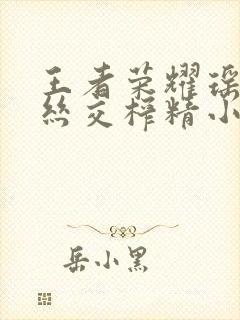 王者荣耀瑶
丝交榨精小
岳小黑